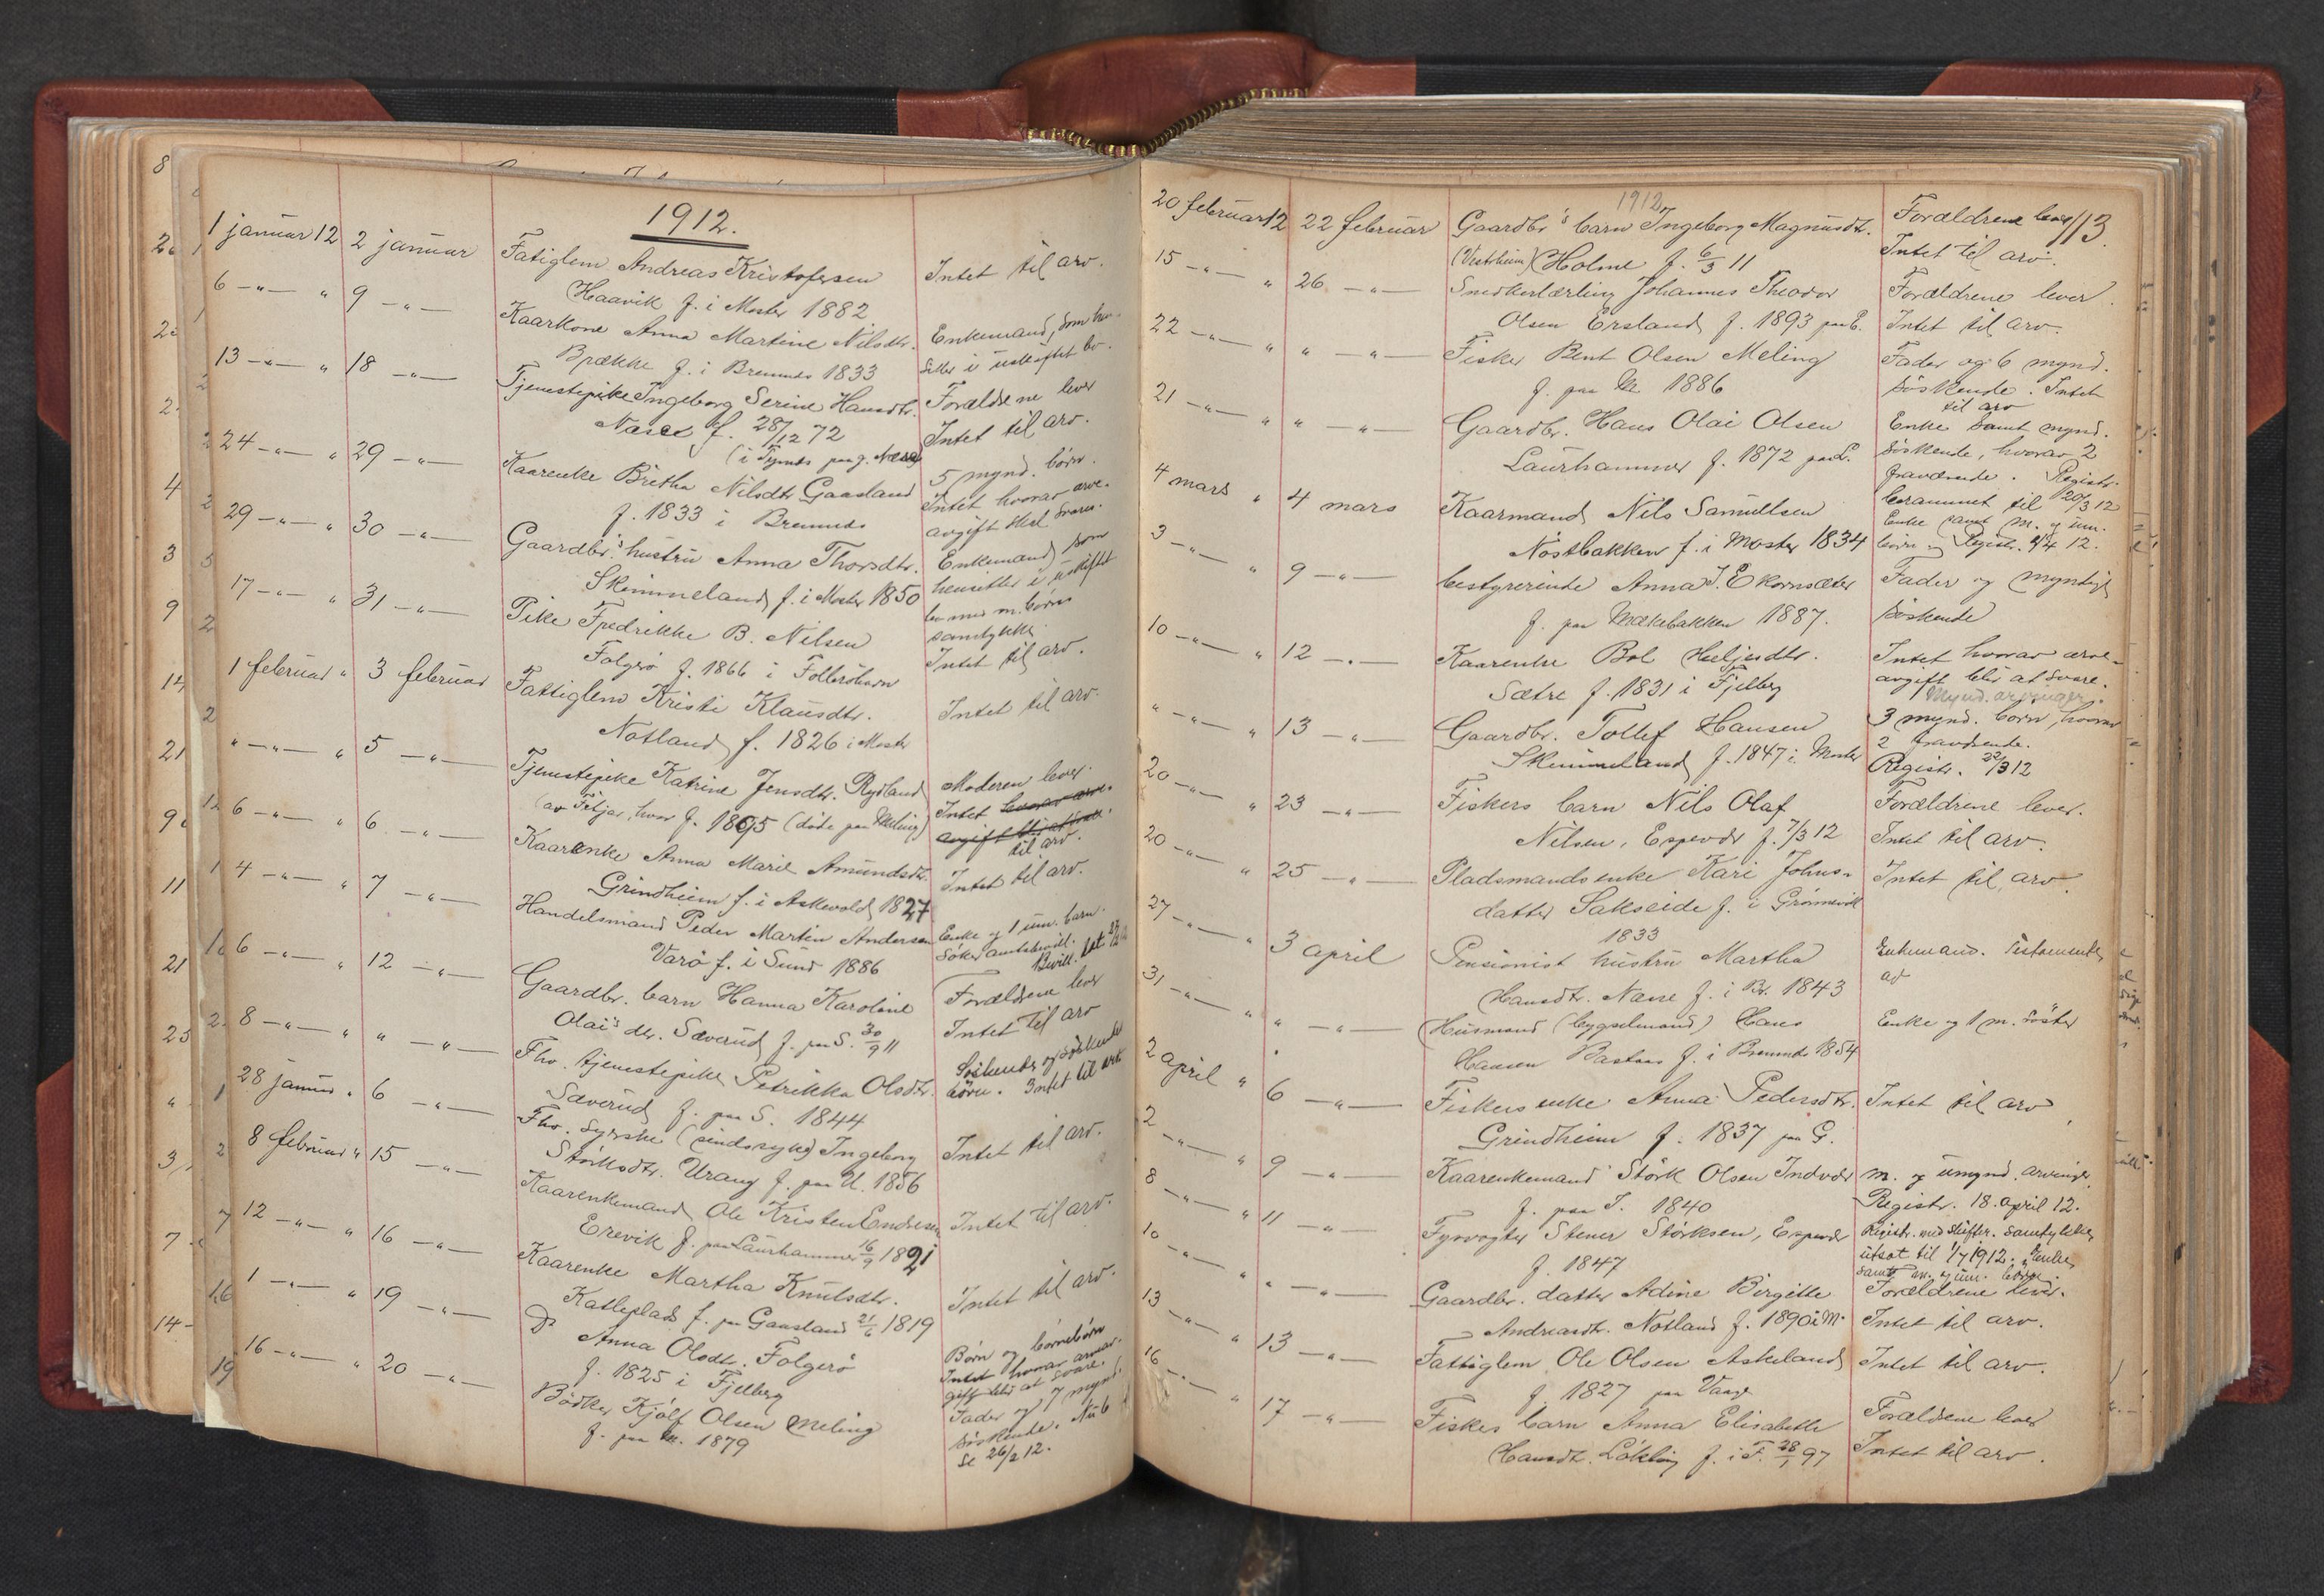 1912.
1 januar 12 2 januar Fatiglem Andreas Kristofersen Intet til arv.
Haavik f. i Moster 1882
6 -"- " 9 -"- Kaarkone Anna Martine Nilsdtr. Enkemand, som hen-
Brække f. i Bremnes 1833 sitter i uskiftet bo.
13 -"- " 18 -"- Tjenestepike Ingeborg Serine Hansdtr. Forældrene lever
Næsse f. 28/12 72 Intet til arv.
(i Tysnes paa g. Næse)
24 -"- " 29 -"- Kaarenke Britha Nilsdtr. Gaasland 5 mynd. børn.
f. 1833 i Bremnes Intet hvorav arve-
avgift skal svares.
29 -"- " 30 -"- Gaardbr.s hustru Anna Thorsdtr. Enkemand som
Skimmeland f. i Moster 1850 hensitter i uskiftet
bo med m. børns
samtykke
17 -"- " 31 -"- Pike Fredrikke B. Nilsen Intet til arv.
Folgerø f. 1866 i Folleröhavn
1 februar " 3 februar Fattiglem Kristi Klausdtr. Intet til arv.
Notland f. 1826 i Moster
" -"- " 5 -"- Tjenestepike Katrine Jensdtr. Rydland Moderen lever.
(av Fitjar, hvor f. 1895 (døde paa Meling) Intet hvorav arve-
avgift blir at svare.
til arv.
6 -"- " 6 -"- Kaarenke Anna Marie Amundsdtr. Intet til arv.
Grindheim f. i Askevold 1827
4 -"- " 7 -"- Handelsmand Peder Martin Andersen Enke og 1 um. barn.
Varø f. i Sund 1886 Søker amtsbevill.
Bevill. dat.
6 -"- " 12 -"- Gaardbr. barn Hanna Karoline Forældrene lever
Olai's dr. Sæverud f. paa S. 30/9 11 Intet til arv
8 -"- " " -"- Fhv. tjenestepike Petrikka Olsdtr. Söskende og söskende
Sæverud f. paa S. 1844 börn. Intet til arv
28 januar " 6 -"- Fhv. syerske (sindssyk) Ingeborg Intet til arv.
Størksdtr. Urang f. paa U. 1856
8 februar " 15 -"- Kaarenkemand Ole Kristen Endresen Intet til arv.
Erevik f. paa Laurhammer 16/9 1821
12 -"- " 16 -"- Kaarenke Martha Knutsdtr. Intet til arv.
Katleplads f. paa Gaasland 21/6 1819
1 -"- " 19 -"- Do Anna Olsdtr. Folgerø Børn og børnebørn
f. 1825 i Fjelberg Intet hvorav arveav-
gift blir at svare.
16 -"- " 20 -"- Bødker Kjølf Olsen Meling Fader og 7 mynd.
f. paa M. 1879 söskende. Nu 6
Se 26/2 12.
1912 113.
20 februar 12 22 februar Gaardbr.s barn Ingeborg Magnusdtr. Forældrene lever
(Vestheim) Holme f. 6/3 11 Intet til arv.
15 -"- " 26 -"- Snedkerlærling Johannes Theodor Forældrene lever.
Olsen Ersland f. 1893 paa E. Intet til arv.
22 -"- " " -"- Fisker Bent Olsen Meling Fader og 6 mynd.
f. paa M. 1886 söskende. Intet
til arv
21 -"- " " -"- Gaardbr. Hans Olai Olsen Enke samt mynd.
Laurhammer f. 1872 paa L. söskende, hvorav 2
fraværende. Registr.
berammet til 20/3 12
4 mars " 4 mars Kaarmand Nils Samuelsen Enke samt m. og um.
Nøstbakken f. i Moster 1834 børn Registr. 2/4 12.
3 -"- " 9 -"- bestyrerinde Anna J. Ekornsæter Fader og myndige
f. paa Mækebakken 1887. söskende
10 -"- " 12 -"- Kaarenke Bol Heljesdtr. Intet hvorav arve-
Sætre f. 1831 i Fjelberg avgift blir at svare.
Mynd. arvinger.
" -"- " 13 -"- Gaardbr. Tollef Hansen 3 mynd. børn, hvorav
Skimmeland f. 1847 i Moster 2 fraværende.
Registr. 22/3 12
20 -"- " 23 -"- Fiskers barn Nils Olaf Forældrene lever.
Nilsen, Espevær f. 7/3 12 Intet til arv.
20 -"- " 25 -"- Pladsmands enke Kari Johns- Intet til arv.
datter Sakseide f. i
1833
27 -"- " 3 april Pensionist hustru Martha Enkemand. Testamente
Hansdtr. Næsse f. i Br. 1843 av
31 -"- " " -"- Husmand (bygselmand) Hans Enke og 1 m. søster
Hansen Bastnes f. i Bremnes 1854
2 april " 6 -"- Fiskers enke Anna Pedersdtr. Intet til arv
Grindheim f. 1837 paa G.
2 -"- " 9 -"- Kaarenkemand Størk Olsen Indvær m. og umynd. arvinger.
f. paa I. 1840 Registr. 18. april 12.
8 -"- " 11 -"- Fyrvogter Stener Størksen, Espevær Registr. med skifter. samtykke
f. 1847 utsat til 1/7 1912. Enke
samt m. og um. børn.
10 -"- " " -"- Gaardbr. datter Adine Birgitte Forældrene lever.
Andreasdtr. Notland f. 1890 i M. Intet til arv.
13 -"- " 13 -"- Fattiglem Ole Olsen Askeland Intet til arv.
f. 1827 paa Vaage
16 -"- " 17 -"- Fiskers barn Anna Elisabeth Forældrene lever
Hansdt. Løkling f. i F. 28/1 97 Intet til arv.